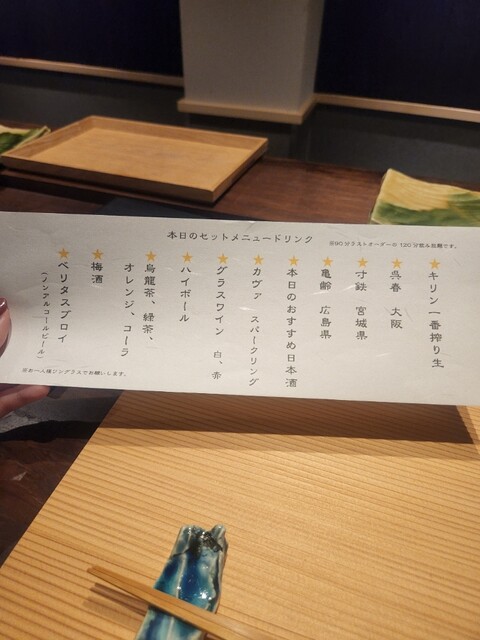 本日のセットメニュードリンク
※90分ラストオーダーの120分飲み放題です。
★キリン一番搾り生
★呉春 大阪
★寸鉄 宮城県
★亀齢 広島県
★本日のおすすめ日本酒
★カヴァ スパークリング
★グラスワイン 白、赤
★ハイボール
★烏龍茶、緑茶、
オレンジ、コーラ
★梅酒
★ベリタスブロイ
(ノンアルコールビール)
グラスでお願いします。